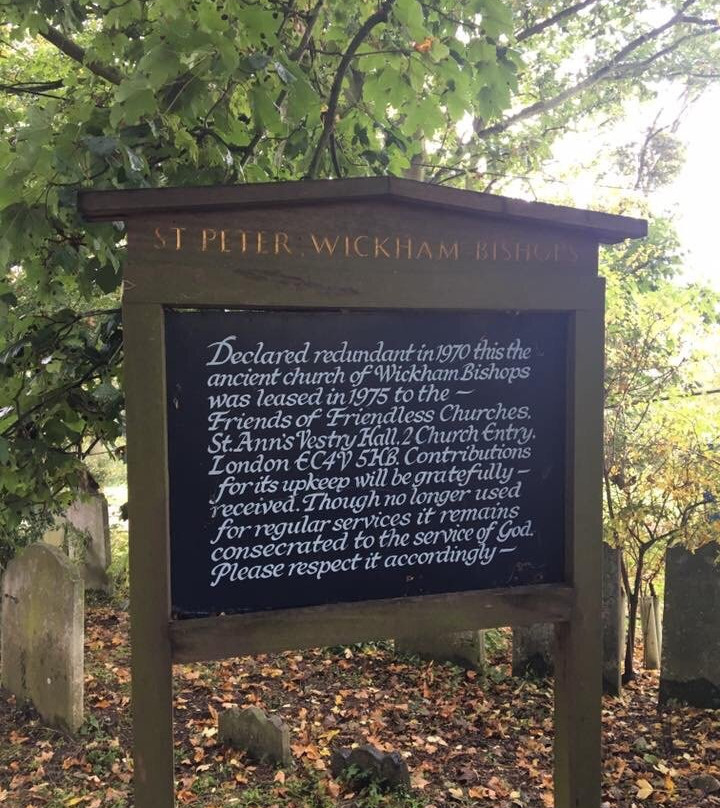 ST PETER. WICKHAM BISHOPS
Declared redundant in 1970 this the
ancient church of Wickham Bishops
was leased in 1975 to the –
Friends of Friendless Churches.
St. Ann's Vestry Hall. 2 Church Entry.
London EC4V 5HB. Contributions
for its upkeep will be gratefully –
received. Though no longer used
for regular services it remains
consecrated to the service of God.
Please respect it accordingly –